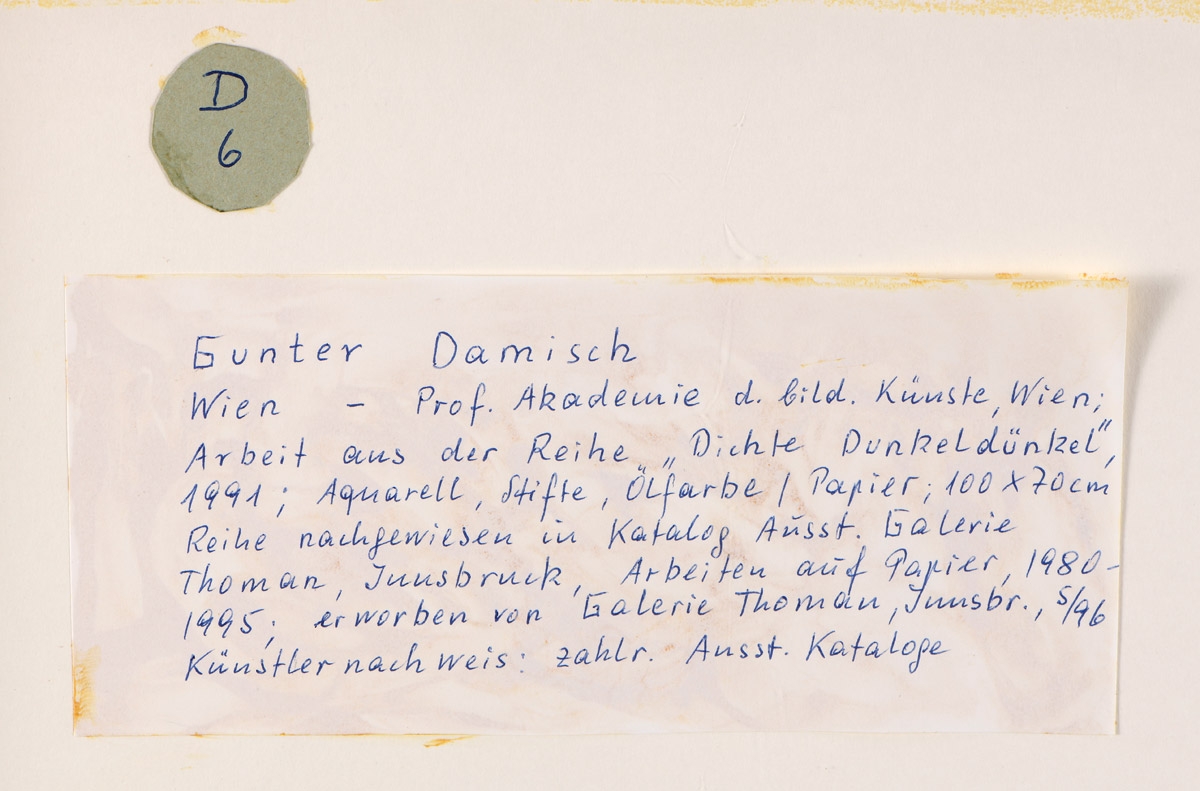 D
6
Gunter Damisch
Wien - Prof. Akademie d. bild. Künste, Wien;
Arbeit aus der Reihe „Dichte Dunkeldünkel",
1991; Aquarell, Stifte, Ölfarbe / Papier; 100 x 70 cm
Reihe nachgewiesen in Katalog Ausst. Galerie
Thoman, Innsbruck, Arbeiten auf Papier, 1980-
1995; erworben von Galerie Thoman, Innsbr., 5/96
Künstlernachweis: zahlr. Ausst. Kataloge